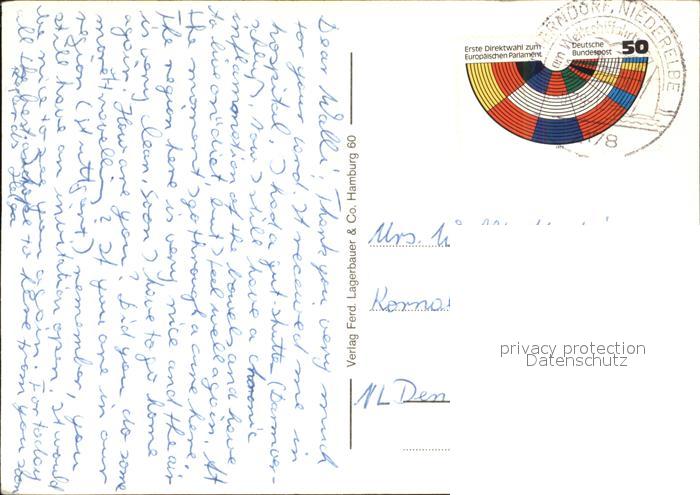 Dear Walli! Thank you very much
for your word. It received me in
hospital, I had a gut shutter (Darmver-
schluß). Now I still have a chronic
inflammation of the bowels and have
to live on diet, but I feel well again. At
the moment I go through a cure here.
The region here is very nice and the air
is very clean. Soon I have to go home
again. How are you? Did you do some
more travelling? If you are in our
region (Stuttgart) remember, you
still have an invitation open. It would
be nice to see you again. For today
all the best + I hope to hear from you soon
Helga
Verlag Ferd. Lagerbauer & Co. Hamburg 60
Erste Direktwahl zum
Europäischen Parlament
Deutsche
Bundespost
50
NIEDERELBE
78
Mrs.
NL Den
privacy protection
Datenschutz